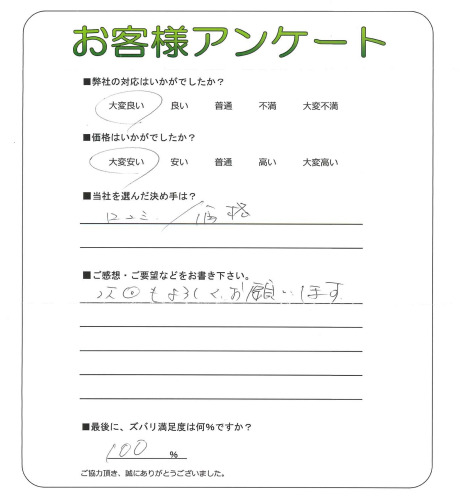 お客様アンケート
■弊社の対応はいかがでしたか？
大変良い 良い 普通 不満 大変不満
■価格はいかがでしたか？
大変安い 安い 普通 高い 大変高い
■当社を選んだ決め手は？
口コミ／価格
■ご感想・ご要望などをお書き下さい。
次回もよろしくお願いします
■最後に、ズバリ満足度は何%ですか？
100 %
ご協力頂き、誠にありがとうございました。